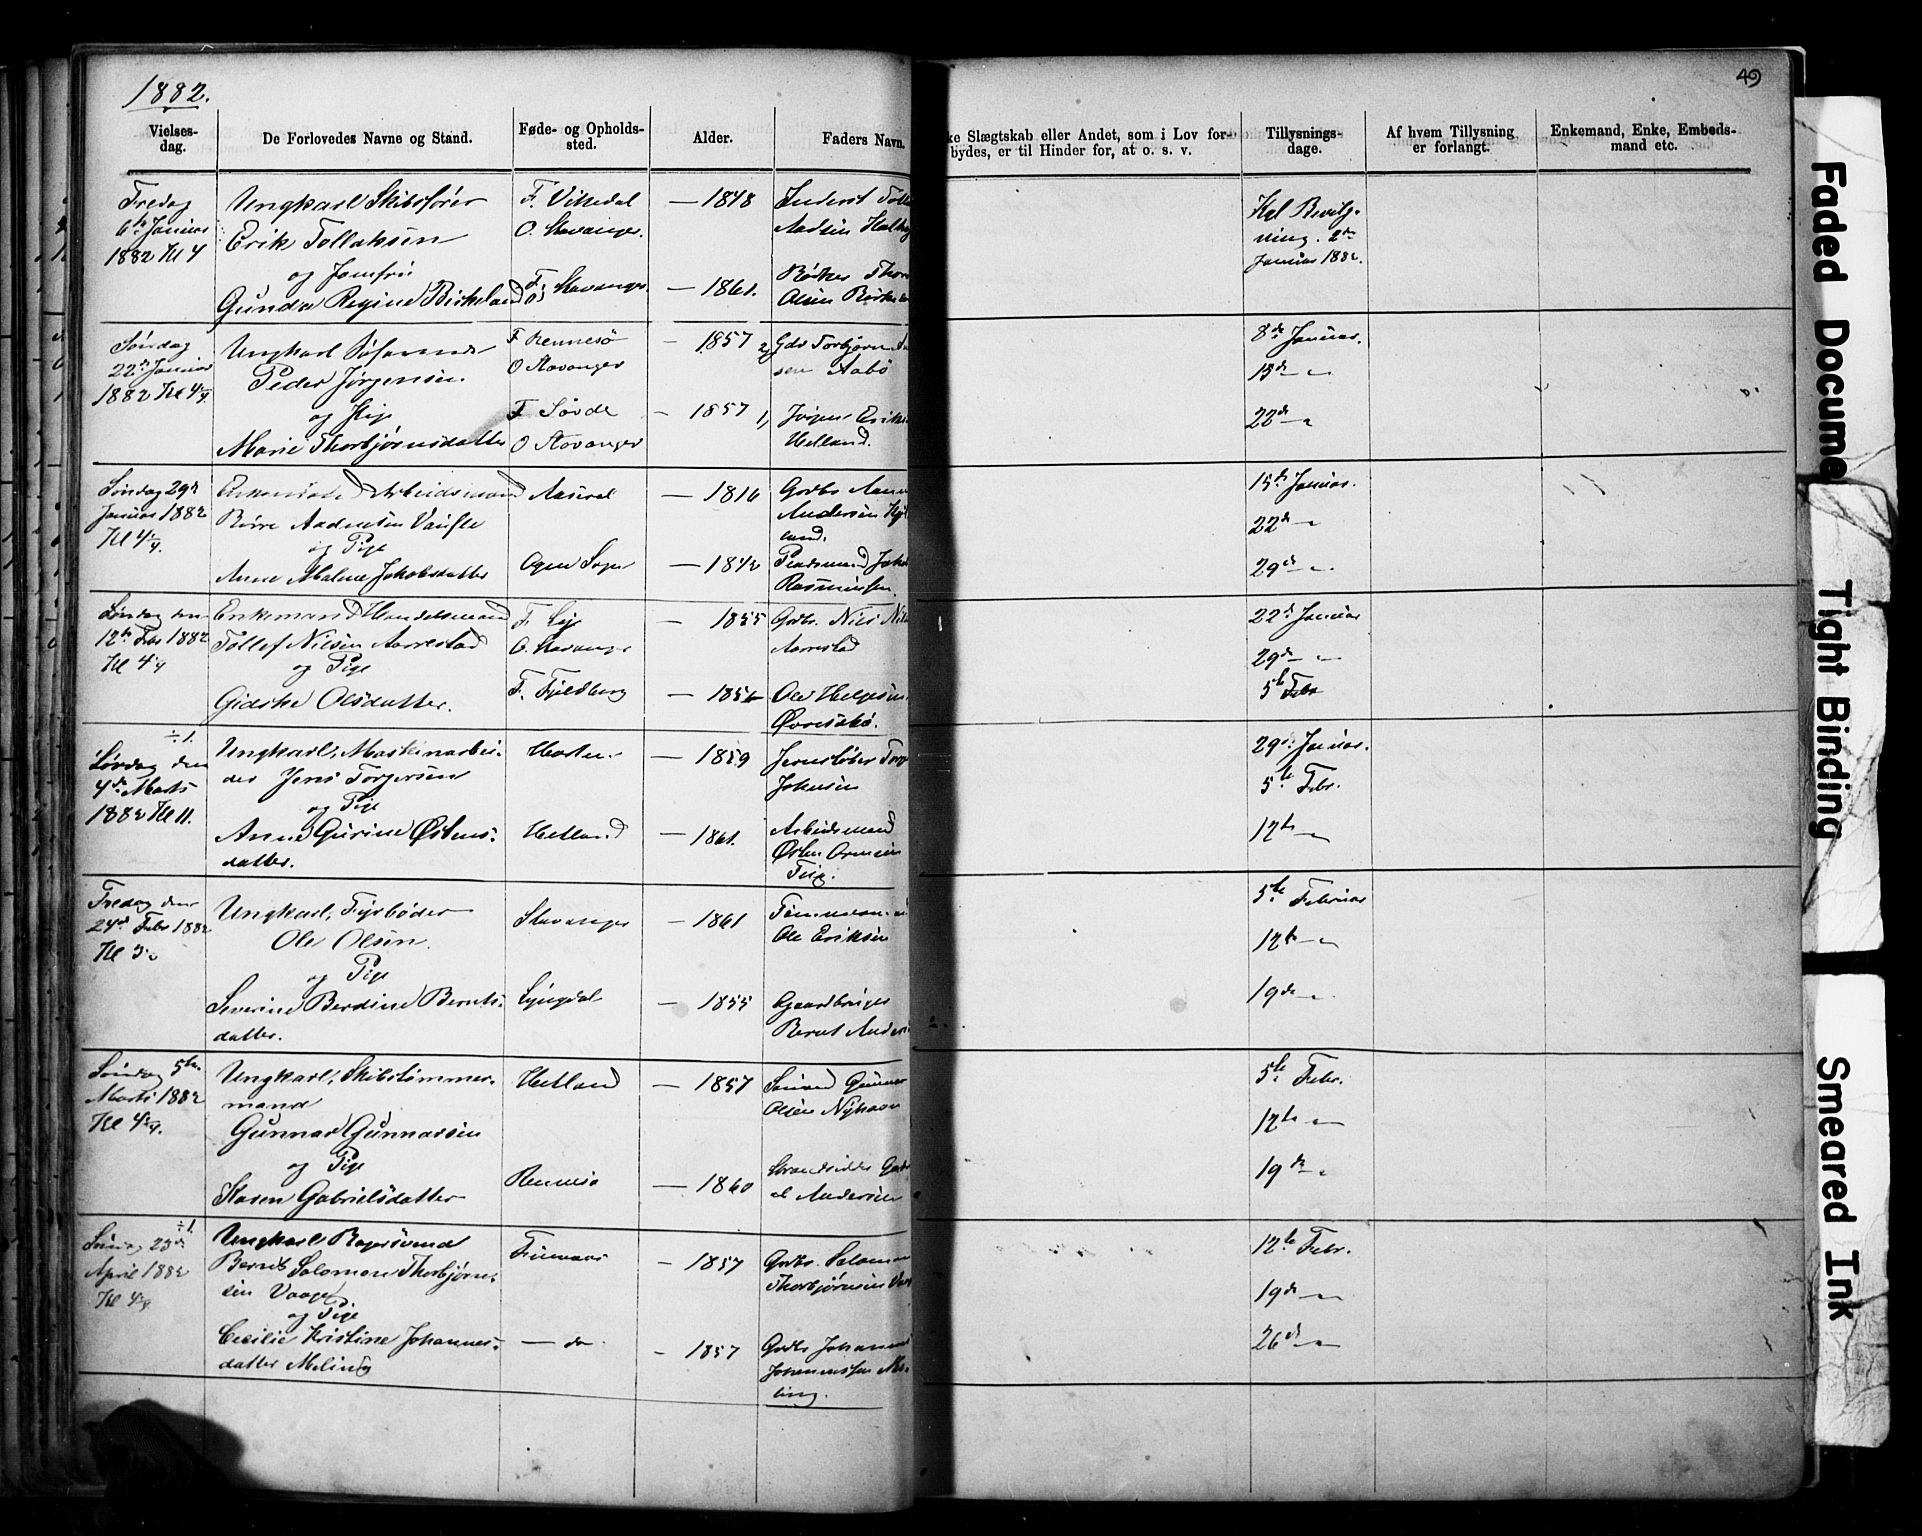 1882.
49
Vielses-
dag.
De Forlovedes Navne og Stand.
Føde- og Opholds-
sted.
Alder.
Faders Navn.
ke Slægtskab eller Andet, som i Lov for-
bydes, er til Hinder for, at o. s. v.
Tillysnings-
dage.
Af hvem Tillysning
er forlangt.
Enkemand, Enke, Embeds-
mand etc.
Fredag
6te Januar
1882 Kl 4
Ungkarl Skibsfører
Erik Tollaksen
og Jomfru
Gunda Regine Birkeland
F. Vikedal
O. Stavanger.
F. Stavanger.
— 1848
— 1861.
Aadsen
Thors
Olsen
Kgl Bevilg-
ning. 2den
Januar 1882.
Søndag
22de Januar
1882 Kl 4
Ungkarl
Peder Jørgensen.
og Pige
Marie Thorbjørnsdatter
F Rennesø
O Stavanger
F Søvde
O Stavanger
— 1857
— 1857
2) Gdr Torbjørn
sen Aabø
1) Jørgen
Helland.
8de Januar.
15de — "
22de — "
Søndag 29de
Januar 1882
Kl 4
Enkemand Arbeidsmand
Børre Aadnesen
og Pige
Anne Malene Jakobsdatter
Aaseral
— 1816
— 1842
Gdbr
Andersen
land.
Pladsmand
Rasmussen.
15de Januar.
22de — "
29de — "
Søndag den
12te Febr 1882
Kl 4
Enkemand Handelsmand
Tollef Nilsen Aarrestad
og Pige
Gidske Olsdatter.
F.
O. Stavanger
F. Fjeldberg
— 1855
Gdbr. Nils
Aarrestad
Ole Helgesen
22de Januar
29de — "
5te Febr
÷1.
Løvdag den
4de Marts
1882 Kl 11.
Ungkarl, Maskinarbei-
der Jens Torgersen
og Pige
Anne Gurine Østens-
datter.
Hetland
— 1859
— 1861.
Jernstøber
Arbeidsmand
Østen
29de Januar.
5te Febr.
12te — "
Fredag den
24de Febr 1882
Kl 5
Ungkarl, Fyrbøder
Ole Olsen.
og Pige
Severine Berdine Bernts-
datter.
Stavanger
Lyngdal
— 1861
— 1855
Tømmermand
Ole Eriksen
Gaardbruger
Bernt
5te Februar
12te — "
19de — "
Søndag 5te
Marts 1882
Kl 4
Ungkarl, Skibstømmer-
mand
Gunnar Gunnarsen
og Pige
Karen Gabrielsdatter
Hetland
Rennesø
— 1857
— 1860
Sømand Gunnar
Olsen Nyhavn
Strandsidder
el Andersen
5te Febr.
12te — "
19de — "
÷1.
Søndag 23de
April 1882
Kl 4
Ungkarl Bagersvend
Bernt Salomon Thorbjørn-
sen Vaage
og Pige
Cecilie Kristine Johannes-
datter Meling
Finnaas
— do
— 1857
— 1857
Gdbr. Salomon
Thorbjørnsen
Gdbr Johannes
Johannessen Me-
ling.
12te Febr.
19de — "
26de — "
Faded Document
Tight Binding
Smeared Ink